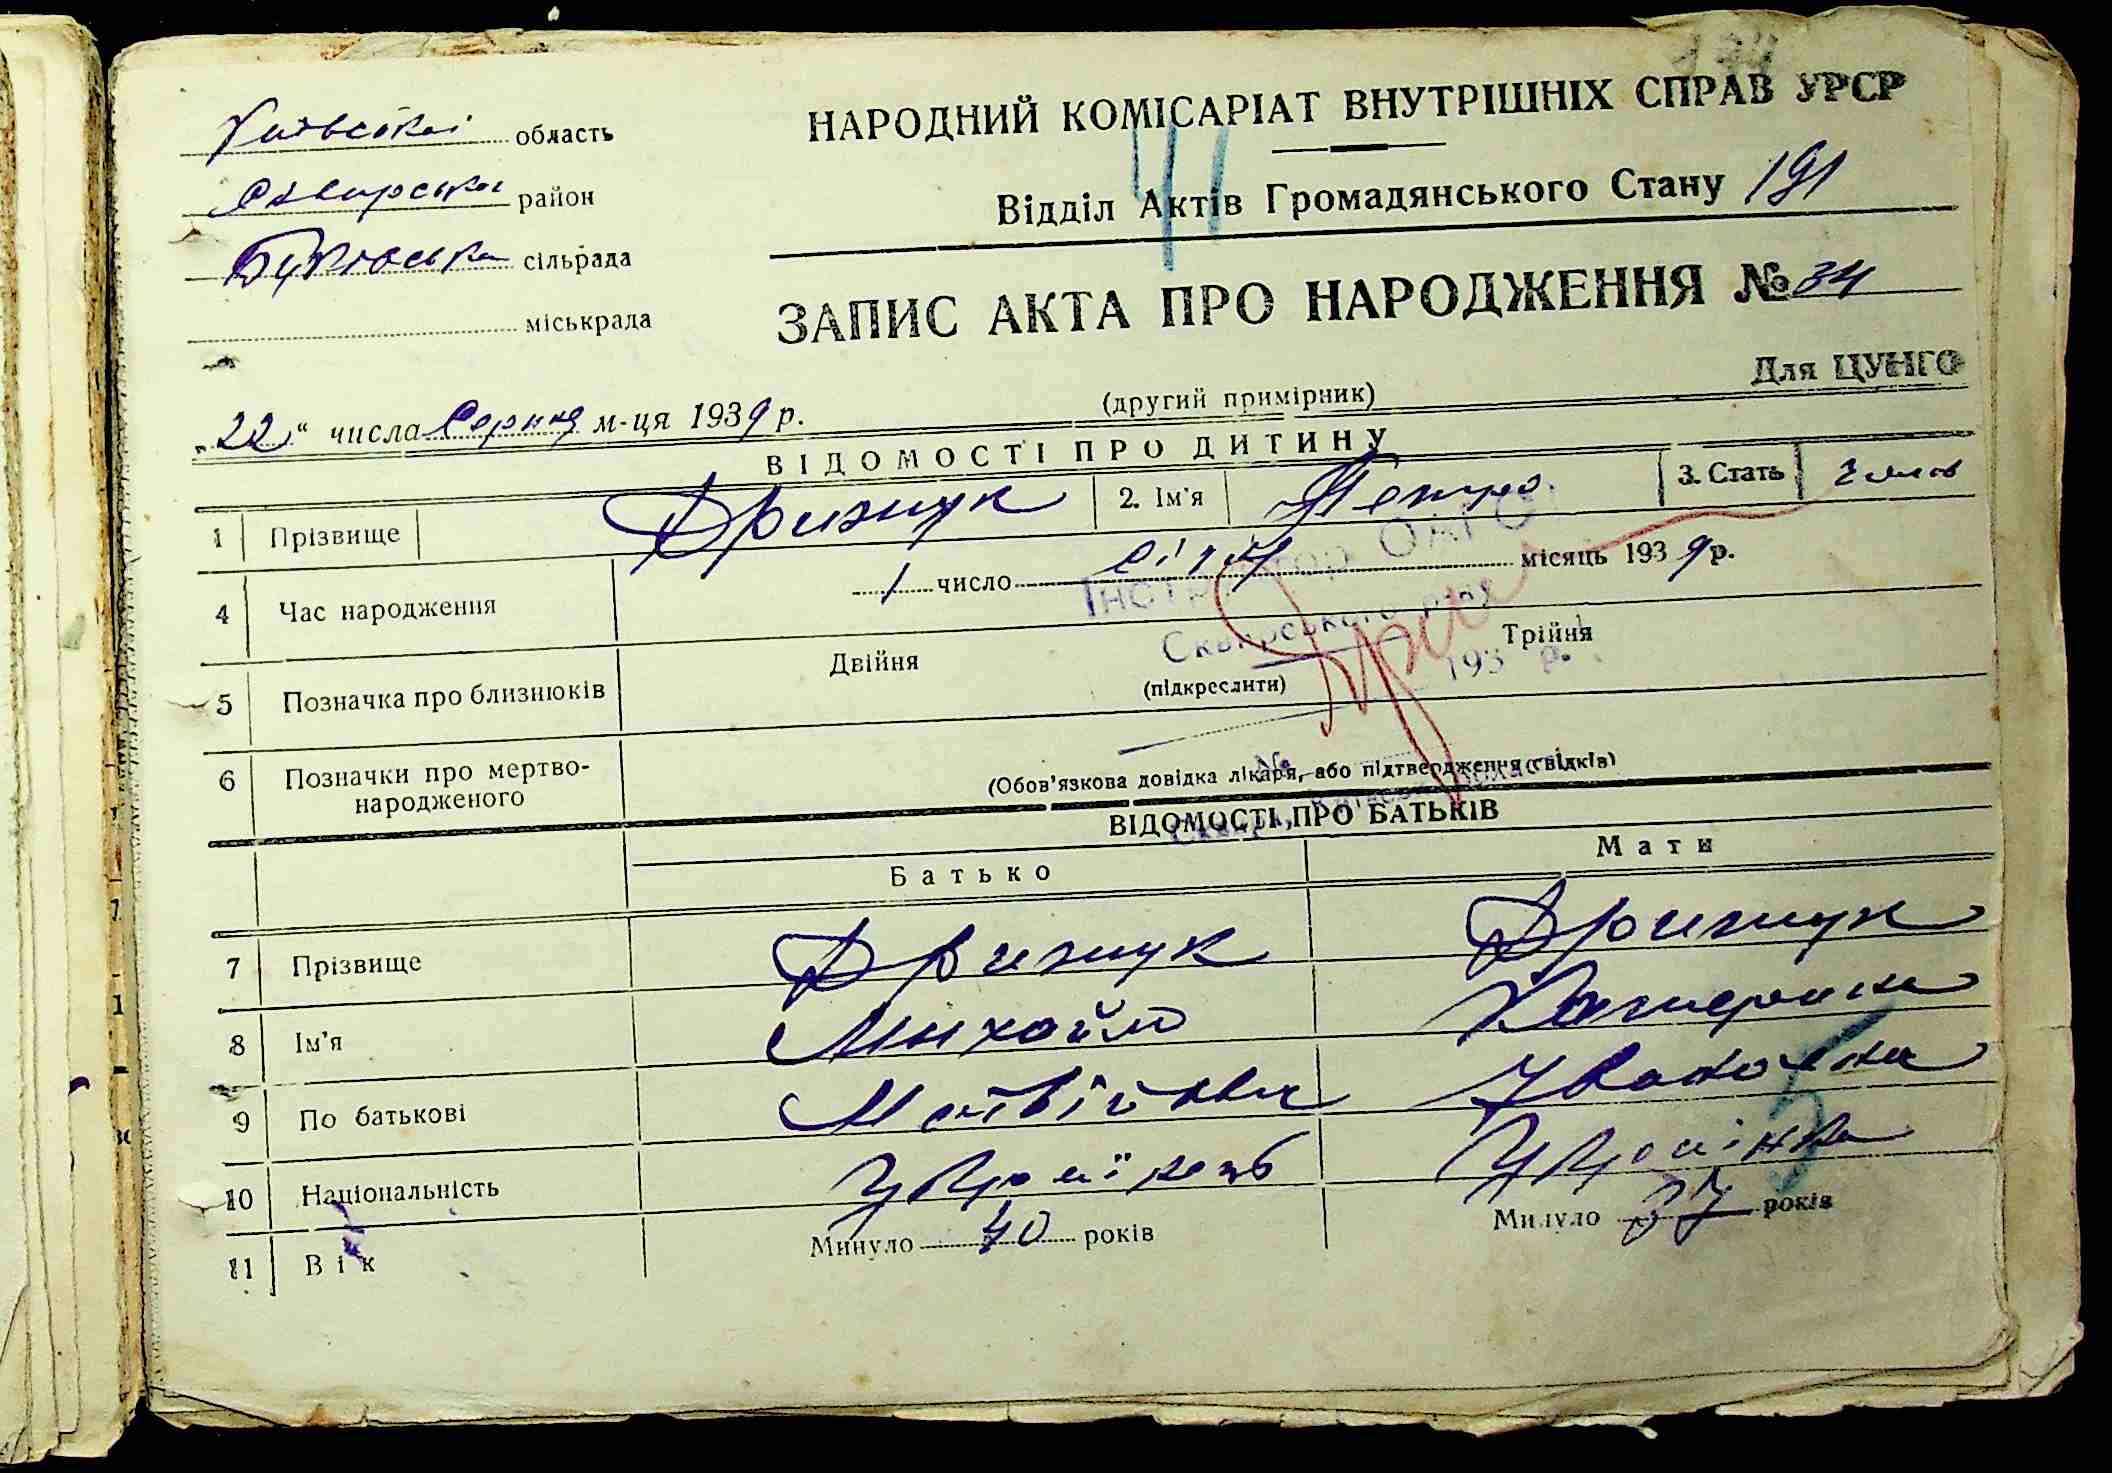 Київської область
Сквирський район
Буківська сільрада
міськрада
НАРОДНИЙ КОМІСАРІАТ ВНУТРІШНІХ СПРАВ УРСР
41
Відділ Актів Громадянського Стану 191
ЗАПИС АКТА ПРО НАРОДЖЕННЯ № 34
Для ЦУНГО
(другий примірник)
„22“ числа Серпня м-ця 1939 р.
ВІДОМОСТІ ПРО ДИТИНУ
1 Прізвище Дрижук 2. Ім'я Петро 3. Стать
4 Час народження 1 число місяць 1939 р.
Інструктор ОАГС
Сквирського р-ну
193 р.
5 Позначка про близнюків Двійня Трійня
(підкреслити)
6 Позначки про мертво-
народженого
(Обов'язкова довідка лікаря, або підтвердження свідків)
№
ВІДОМОСТІ ПРО БАТЬКІВ
Батько Мати
7 Прізвище Дрижук Дрижук
8 Ім'я Михайло Катерина
9 По батькові Матвійович Івановна
10 Національність Українець Українка
11 Вік Минуло 40 років Минуло 37 років